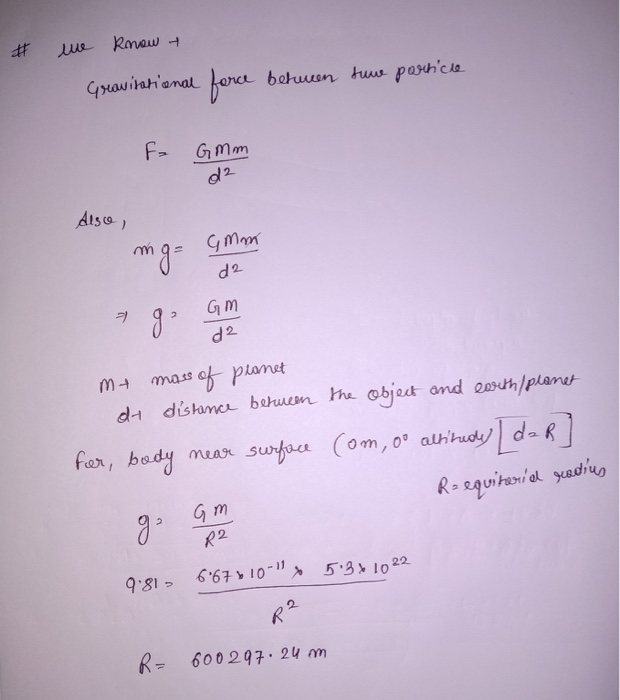 # we know →
Gravitational force between two particle
F = GMm / d²
Also,
mg = GMm / d²
⇒ g = GM / d²
M → mass of planet
d → distance between the object and earth/planet
for, body near surface (0m, 0° altitude) [d = R]
R = equitorial radius
g = GM / R²
9.81 = 6.67 × 10⁻¹¹ × 5.3 × 10²² / R²
R = 600297.24 m